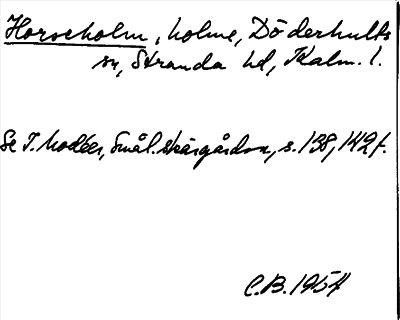 Horseholm, holme, Döderhults
sn, Stranda hd, Kalm. l.
Se T. Modéer, Smål. skärgårdsn, s. 138, 142 f.
C.B. 1954